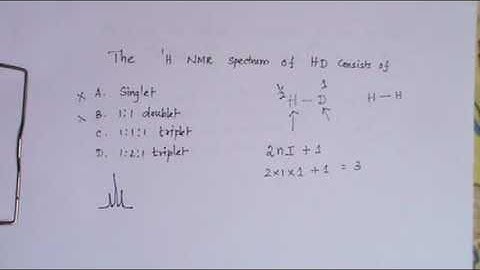 The ¹H NMR spectrum of HD consists of
x A. Singlet
x B. 1:1 doublet
C. 1:1:1 triplet
D. 1:2:1 triplet
½ 1
H – D
H – H
2nI + 1
2×1×1 + 1 = 3